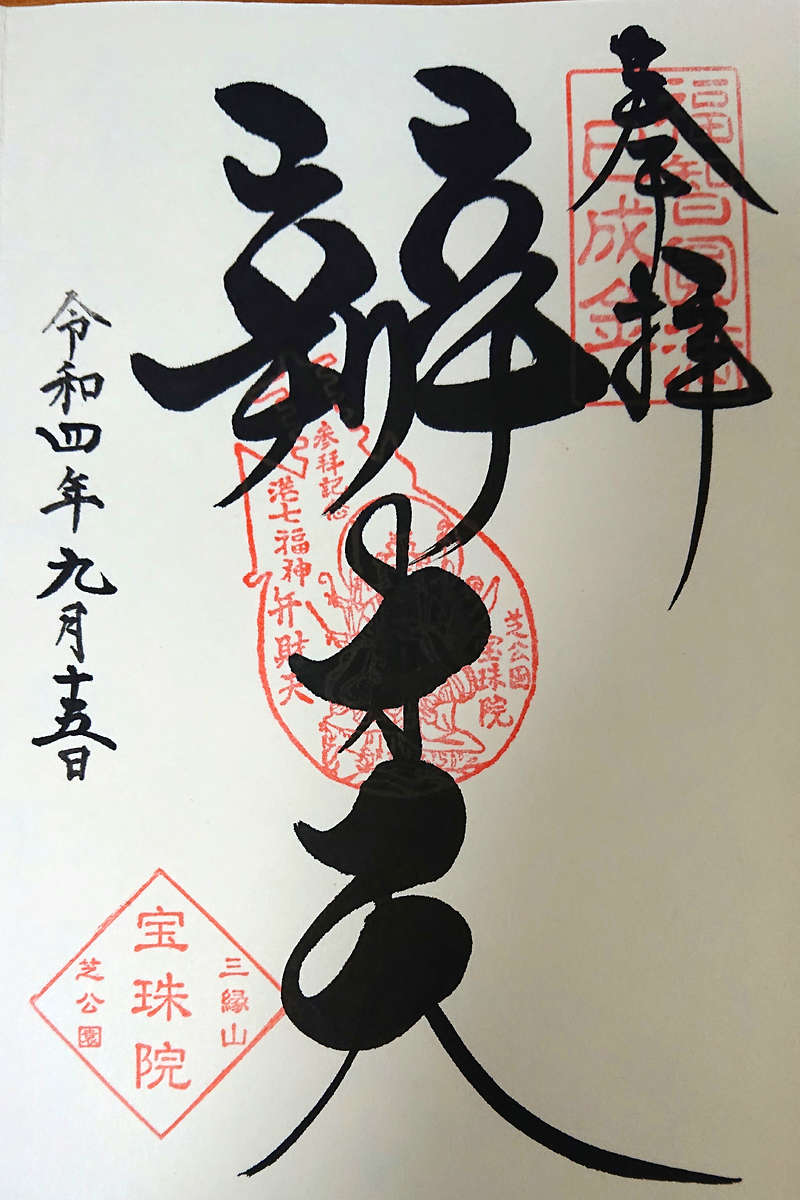 奉拝
福智圓満
巳成金
辨才天
参拝記念
港七福神弁財天
芝公園
宝珠院
令和四年九月十五日
三縁山
宝珠院
芝公園